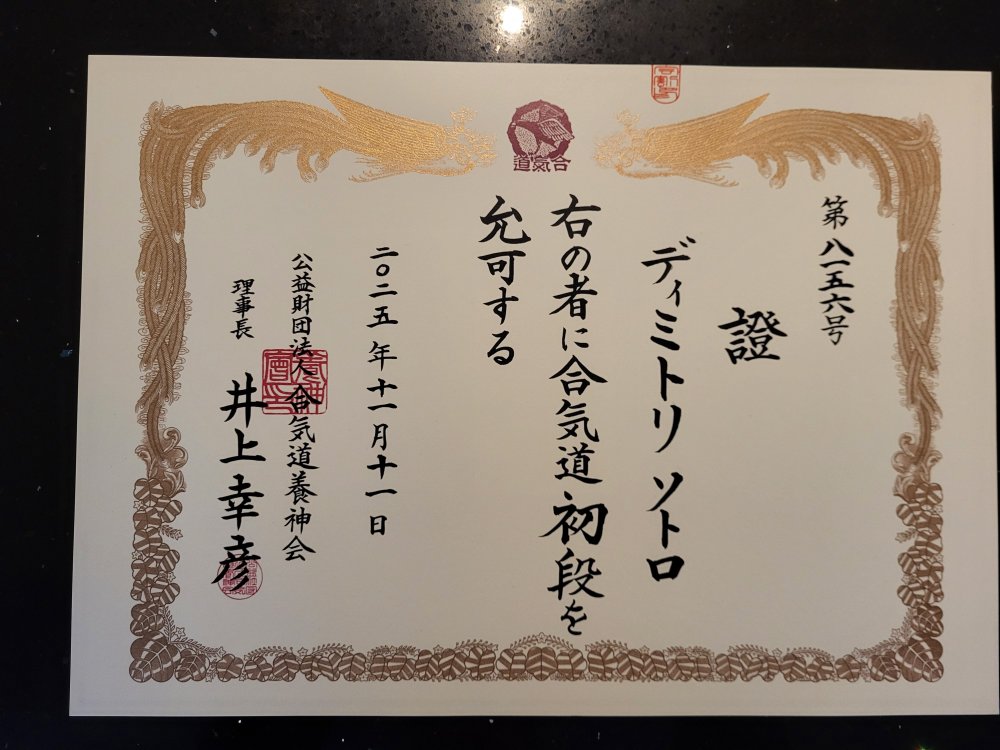 合氣道
第八一五六号
證
ディミトリ ソトロ
右の者に合気道初段を
允可する
二〇二五年十一月十一日
公益財団法人合気道養神会
理事長 井上幸彦